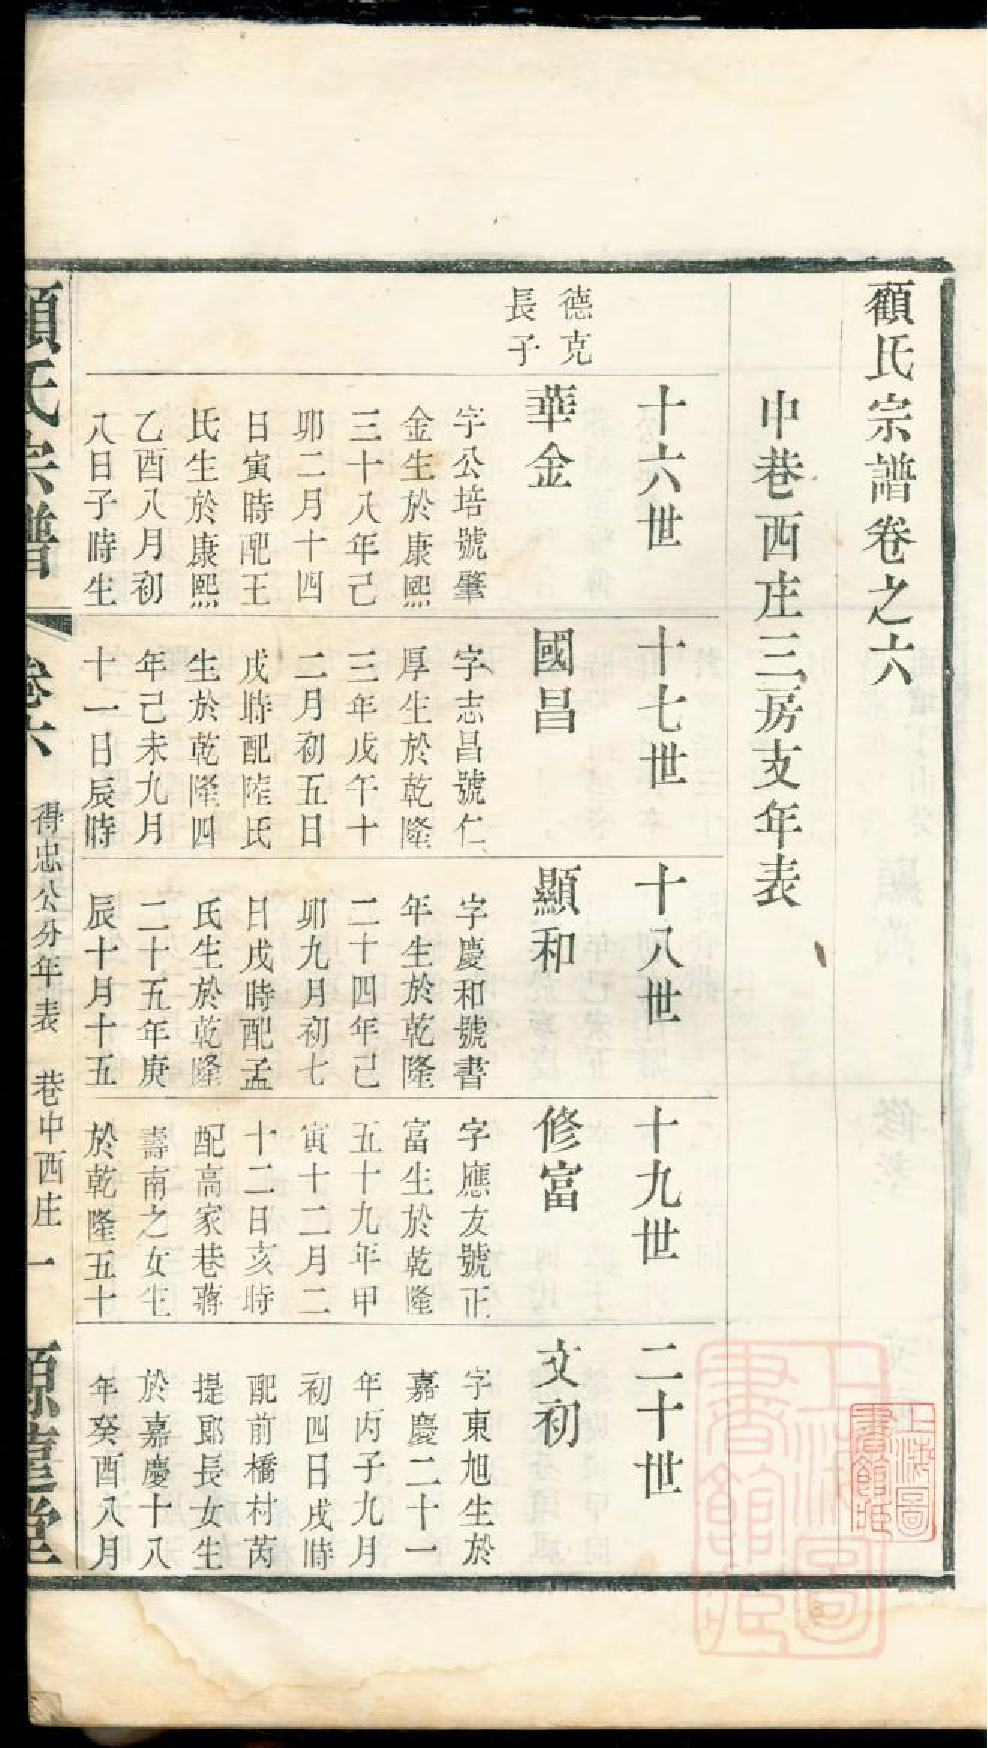 顧氏宗譜卷之六
中巷西庄三房支年表
十六世
十七世
十八世
十九世
二十世
德克
長子
華金
字公培號肇
金生於康熙
三十八年己
卯二月十四
日寅時配王
氏生於康熙
乙酉八月初
八日子時生
國昌
字志昌號仁
厚生於乾隆
三年戊午十
二月初五日
戌時配陸氏
生於乾隆四
年己未九月
十一日辰時
顯和
字慶和號書
年生於乾隆
二十四年己
卯九月初七
日戌時配孟
氏生於乾隆
二十五年庚
辰十月十五
修富
字應友號正
富生於乾隆
五十九年甲
寅十二月二
十二日亥時
配高家巷蔣
壽南之女生
於乾隆五十
文初
字東旭生於
嘉慶二十一
年丙子九月
初四日戌時
配前橋村芮
提郎長女生
於嘉慶十八
年癸酉八月
顧氏宗譜
卷六
得忠公分年表
巷中西庄
一
上海圖書館藏
上海圖書館藏